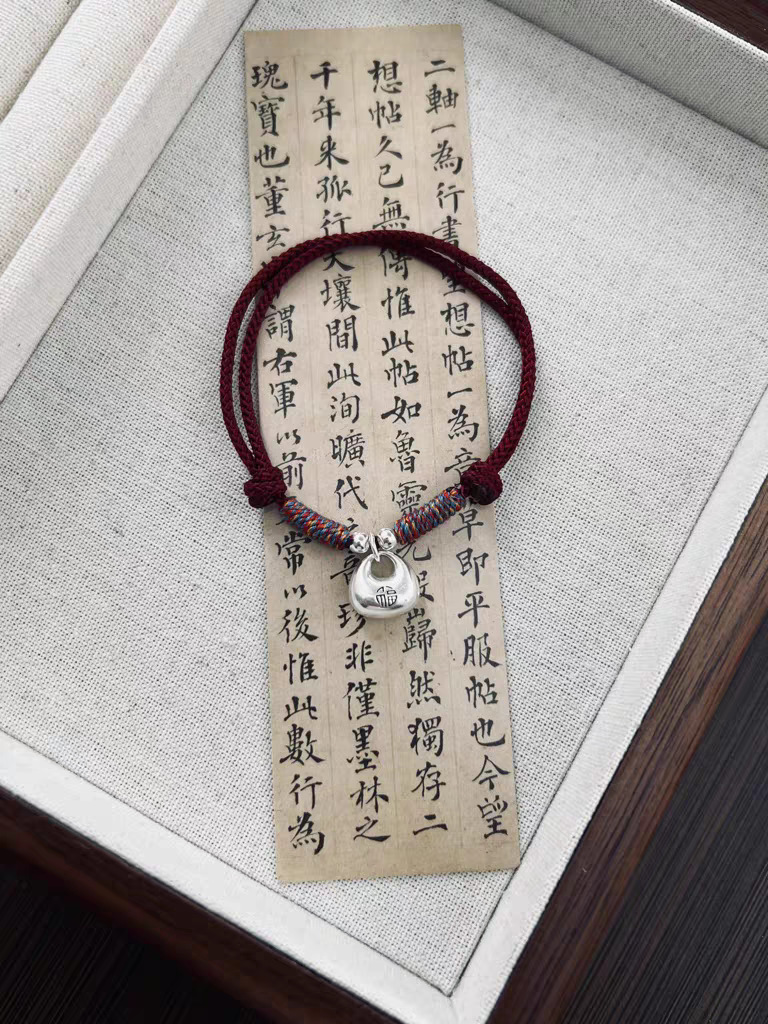 二軸一為行書望想帖一為章草即平服帖也今望
想帖久已無傳惟此帖如魯靈光殿巋然獨存二
千年来孤行天壤間此洵曠代奇珍非僅墨林之
瑰寶也董玄謂右軍以前常以後惟此數行為
福